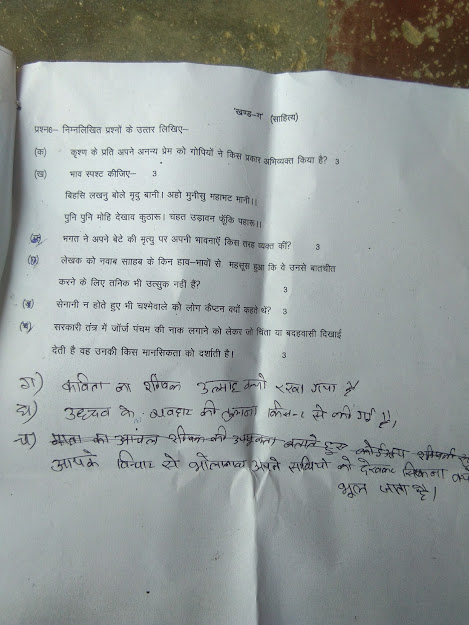 'खण्ड-ग' (साहित्य)
प्रश्न8- निम्नलिखित प्रश्नों के उत्तर लिखिए-
(क) कृष्ण के प्रति अपने अनन्य प्रेम को गोपियों ने किस प्रकार अभिव्यक्त किया है? 3
(ख) भाव स्पश्ट कीजिए- 3
बिहसि लखनु बोले मृदु बानी। अहो मुनीसु महाभट मानी।।
पुनि पुनि मोहि देखाव कुठारू। चहत उड़ावन फूँकि पहारू।।
भगत ने अपने बेटे की मृत्यु पर अपनी भावनाएँ किस तरह व्यक्त कीं? 3
लेखक को नवाब सााहब के किन हाव-भावों से महसूस हुआ कि वे उनसे बातचीत
करने के लिए तनिक भी उत्सुक नहीं हैं? 3
सेनानी न होते हुए भी चश्मेवाले को लोग कैप्टन क्यों कहते थे? 3
सरकारी तंत्र में जॉर्ज पंचम की नाक लगाने को लेकर जो चिंता या बदहवासी दिखाई
देती है वह उनकी किस मानसिकता को दर्शाती है। 3
ग) कविता का शीर्षक उत्साह क्यों रखा गया है
घ) उद्धव के व्यवहार की तुलना किस-2 से की गई है,
माता का आंचल शीर्षक की उपयुक्तता बताते हुए कोई अन्य शीर्षक
आपके विचार से भोलानाथ अपने साथियों को देखकर सिसकना
भूल जाता है।